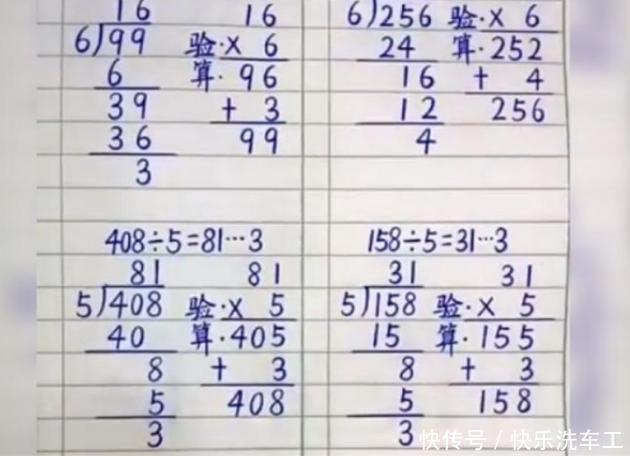 16 16
6)99 验·× 6
6 算·96
39 + 3
36 99
3
6)256 验·× 6
24 算·252
16 + 4
12 256
4
408÷5=81…3
81 81
5)408 验·× 5
40 算·405
8 + 3
5 408
3
158÷5=31…3
31 31
5)158 验·× 5
15 算·155
8 + 3
5 158
3
快传号/快乐洗车工